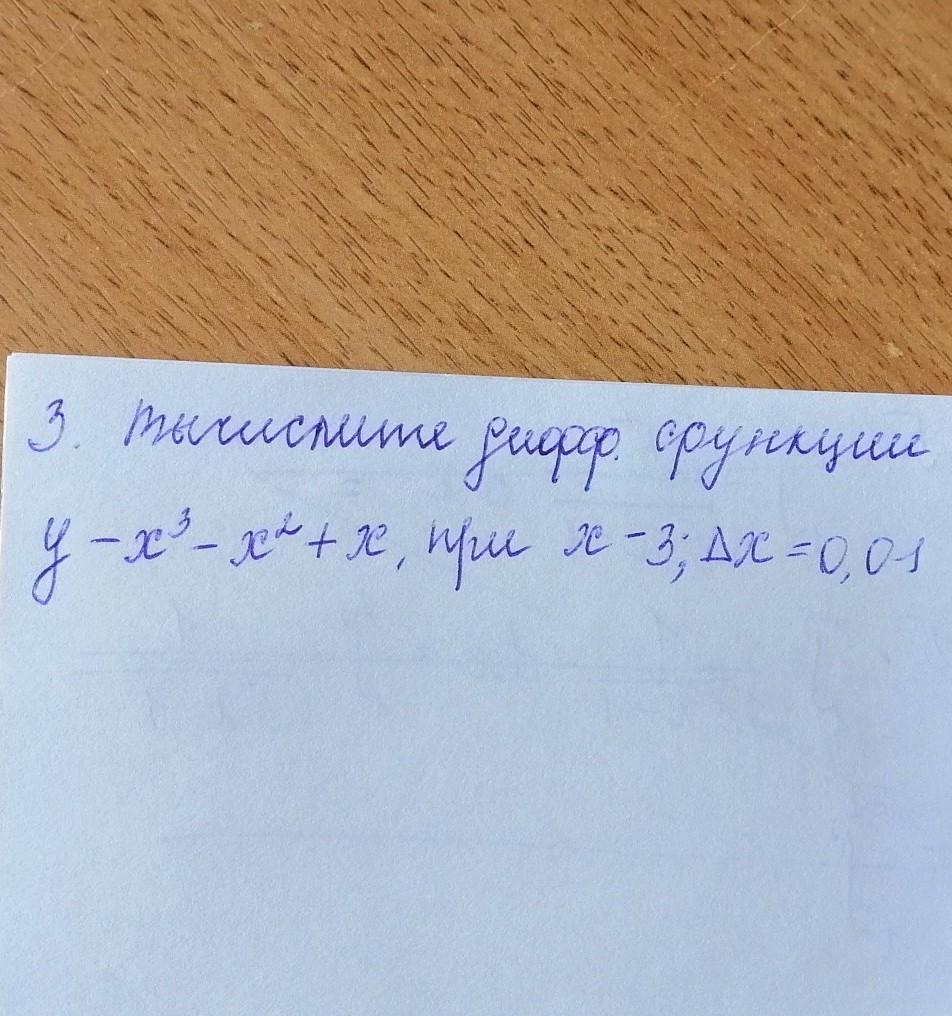 3. Вычислите дифф. функции
y - x³ - x² + x, при x - 3; Δx = 0,01